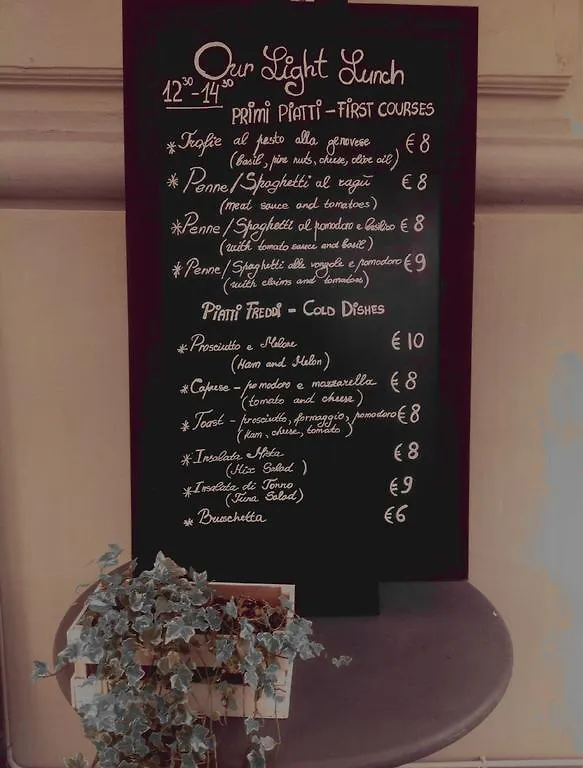 Our Light Lunch
12³⁰-14³⁰
PRIMI PIATTI - FIRST COURSES
* Trofie al pesto alla genovese € 8
(basil, pine nuts, cheese, olive oil)
* Penne/Spaghetti al ragù € 8
(meat sauce and tomatoes)
* Penne/Spaghetti al pomodoro e basilico € 8
(with tomato sauce and basil)
* Penne/Spaghetti alle vongole e pomodoro € 9
(with clams and tomatoes)
PIATTI FREDDI - COLD DISHES
* Prosciutto e Melone € 10
(Ham and Melon)
* Caprese - pomodoro e mozzarella € 8
(tomato and cheese)
* Toast - prosciutto, formaggio, pomodoro € 8
(Ham, cheese, tomato)
* Insalata Mista € 8
(Mix Salad)
* Insalata di Tonno € 9
(Tuna Salad)
* Bruschetta € 6